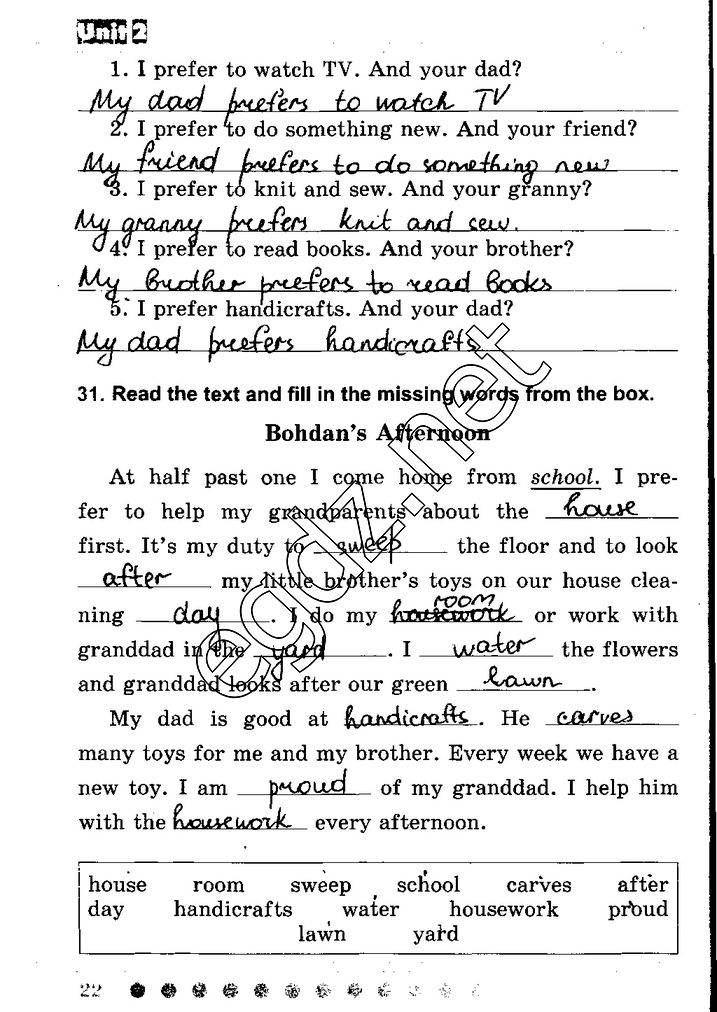 Unit 2
1. I prefer to watch TV. And your dad?
My dad prefers to watch TV
2. I prefer to do something new. And your friend?
My friend prefers to do something new
3. I prefer to knit and sew. And your granny?
My granny prefers knit and sew.
4. I prefer to read books. And your brother?
My brother prefers to read books
5. I prefer handicrafts. And your dad?
My dad prefers handicrafts
31. Read the text and fill in the missing words from the box.
Bohdan's Afternoon
At half past one I come home from school. I pre-
fer to help my grandparents about the house
first. It's my duty to sweep the floor and to look
after my little brother's toys on our house clea-
room
ning day. I do my housework or work with
granddad in the yard. I water the flowers
and granddad looks after our green lawn.
My dad is good at handicrafts. He carves
many toys for me and my brother. Every week we have a
new toy. I am proud of my granddad. I help him
with the housework every afternoon.
house room sweep school carves after
day handicrafts water housework proud
lawn yard
22
egdz.net